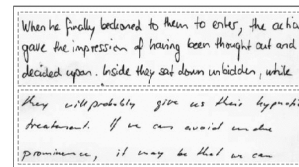 When he finally beckoned to them to enter, the
gave the impression of having been thought out and
decided upon. Inside they sat down unbidden, while
they will probably give us their hypnotic
treatment. If we can avoid undue
prominence, it may be that we can